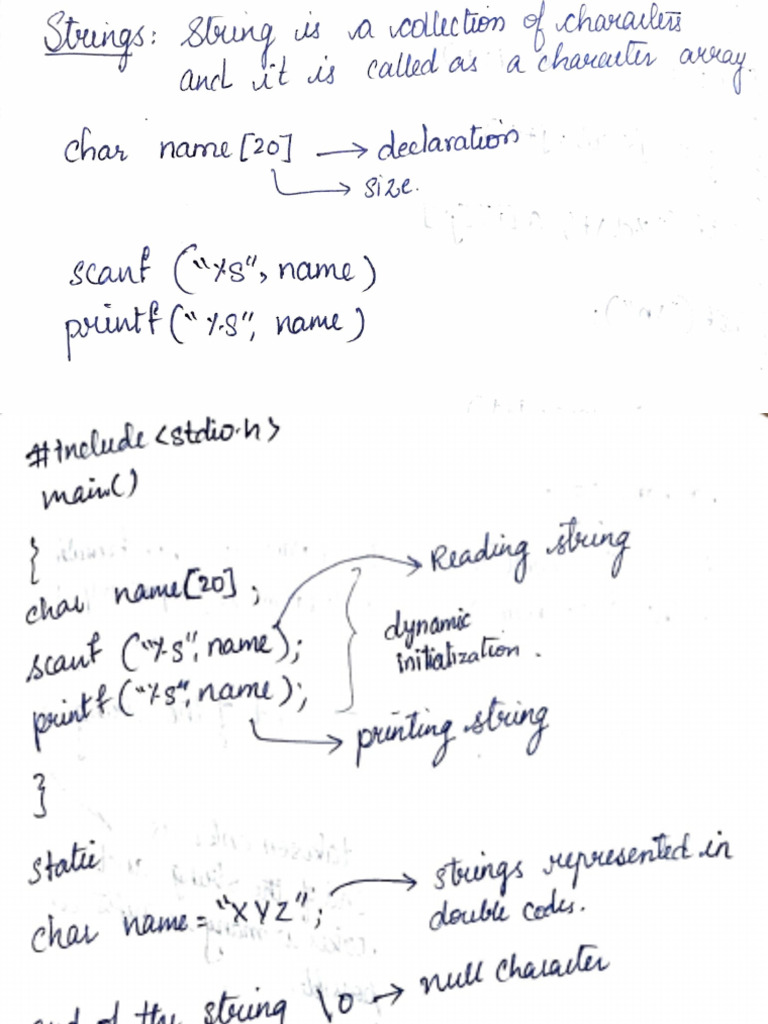 Strings: String is a collection of characters
and it is called as a character array.
char name[20] → declaration
→ size.
scanf ("%s", name)
printf("%s", name)
#include <stdio.h>
main()
{
char name[20];
→ Reading string
scanf ("%s", name);
dynamic
initialization.
printf("%s", name);
→ printing string
}
static
char name = "XYZ"; → strings represented in
double codes.
end of the string \0 → null character